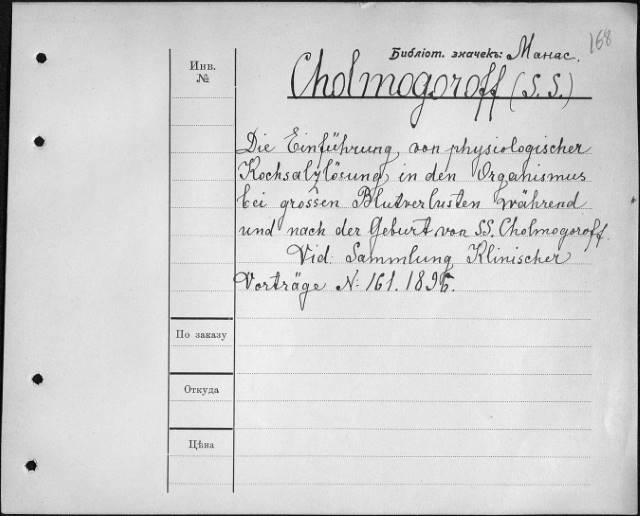 168
Библіот. значекъ: Манас.
Инв.
№
Cholmogoroff (S. S.)
Die Einführung von physiologischer
Kochsalzlösung in den Organismus
bei grossen Blutverlusten während
und nach der Geburt von S.S. Cholmogoroff.
Vid. Sammlung Klinischer
Vorträge N: 161. 1896.
По заказу
Откуда
Цѣна